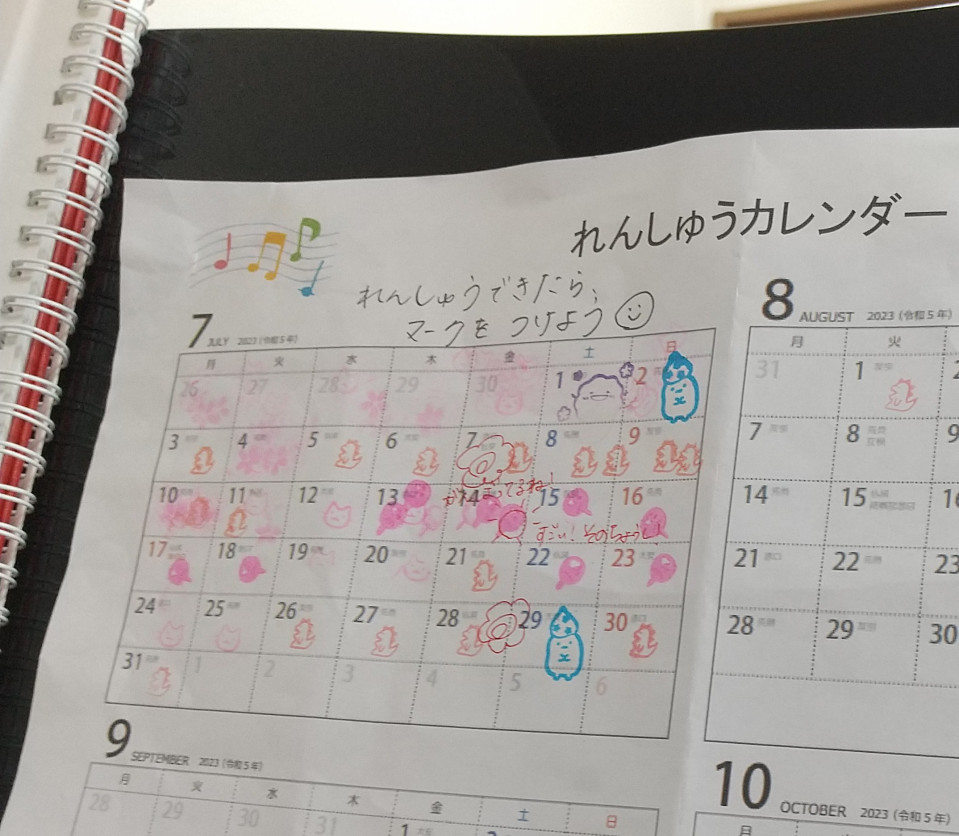 れんしゅうカレンダー
れんしゅうできたら、
マークを つけよう
7 JULY 2023 (令和5年)
月 火 水 木 金 土 日
26 27 28 29 30 1 2
3 4 5 6 7 8 9
10 11 12 13 14 15 16
がんばってるね!
すごい!そのちょうし!
17 18 19 20 21 22 23
24 25 26 27 28 29 30
31 1 2 3 4 5 6
8 AUGUST 2023 (令和5年)
月 火
31 1 2
7 8 9
14 15
21 22 23
28 29 30
9 SEPTEMBER 2023 (令和5年)
月 火 水 木 金 土 日
28 29 30 31 1
10 OCTOBER 2023 (令和5年)
月